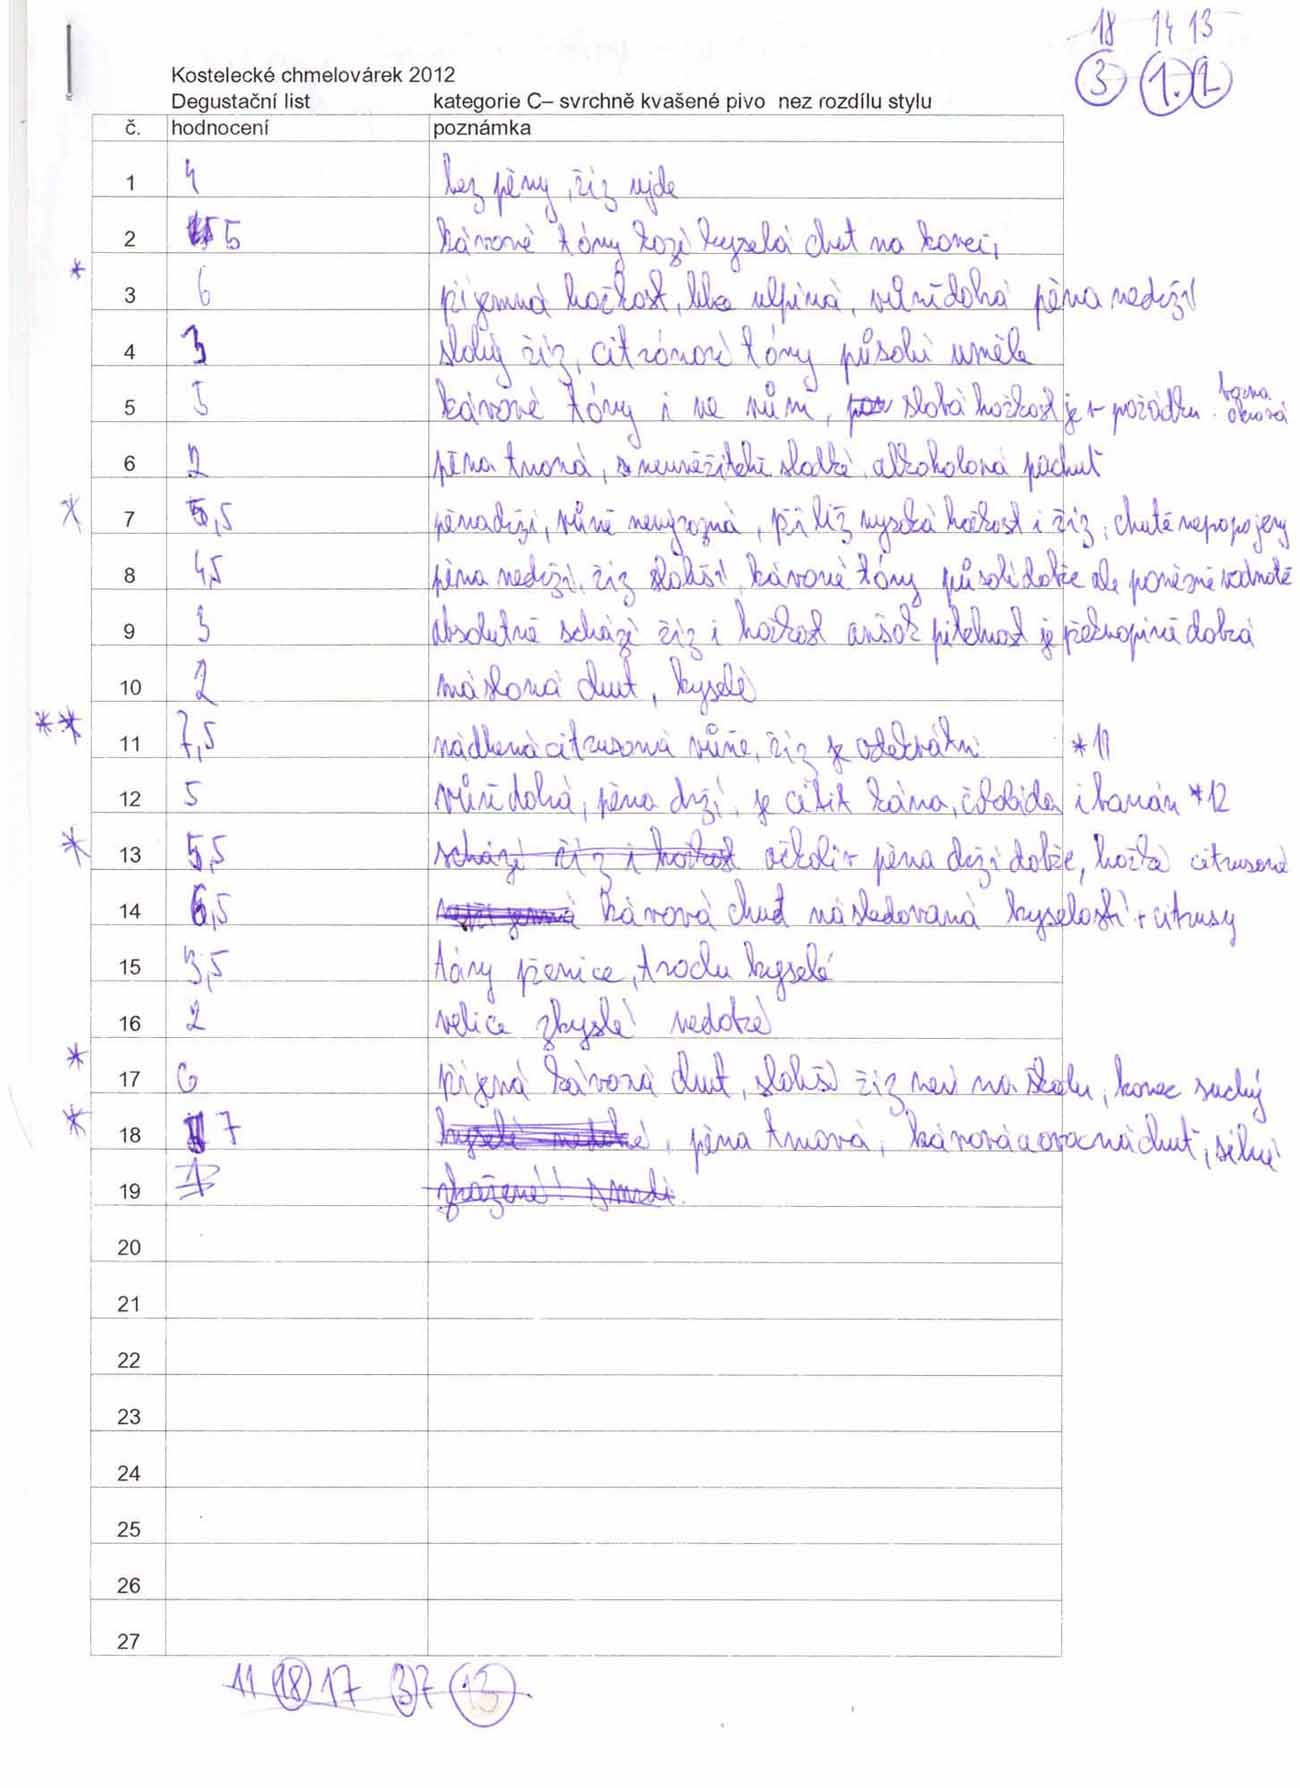 18 14 13
3 1. 2
Kostelecké chmelovárek 2012
Degustační list kategorie C– svrchně kvašené pivo nez rozdílu stylu
č. hodnocení poznámka
1 4 bez pěny, říz ujde
2 5 kávové tóny kyselá chuť na konci
* 3 6 hořkost, pěna nedrží
4 3 slabý říz, citrónové tóny působí uměle
5 5 kávové tóny i ve vůni, slabá hořkost je v pořádku barva
6 2 pěna tmavá, neuvěřitelně sladké, alkoholová pachuť
* 7 5,5 pěna drží, vůně nevýrazná, příliž vysoká hořkost i říz, chutě nepopojeny
8 4,5 pěna nedrží, říz slabší, kávové tóny působí dobře ale poněkud vodnatě
9 3 absolutně schází říz i hořkost avšak pitelnost je překvapivě dobrá
10 2 máslová chuť, kyselé
** 11 7,5 nádherná citrusová vůně, říz je *11
12 5 vůně dobrá, pěna drží, je cítit káva, čokoláda i banán *12
* 13 5,5 schází říz i hořkost ačkoliv pěna drží dobře, hořká citrusová
14 6,5 kávová chuť následovaná kyselostí + citrusy
15 3,5 tóny pšenice, trochu kyselé
16 2 velice zkyslé nedobré
* 17 6 kávová chuť, slabší říz není na škodu, konec suchý
* 18 7 kyselé nedobré, pěna tmavá, kávová a ovocná chuť, silné
19 1 zkažené! smrdí
20
21
22
23
24
25
26
27
11 18 17 3 7 13